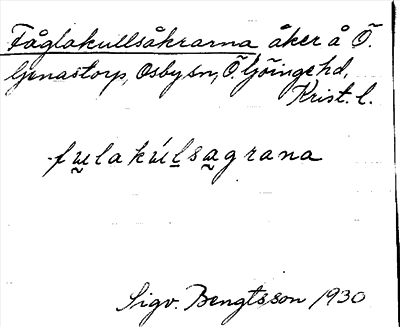 Fåglakullsåkrarna, åker å Ö.
Genastorp, Osby sn, Ö. Göinge hd,
Krist. l.
fṵlakúl̠sa̰grana
Sigv. Bengtsson 1930